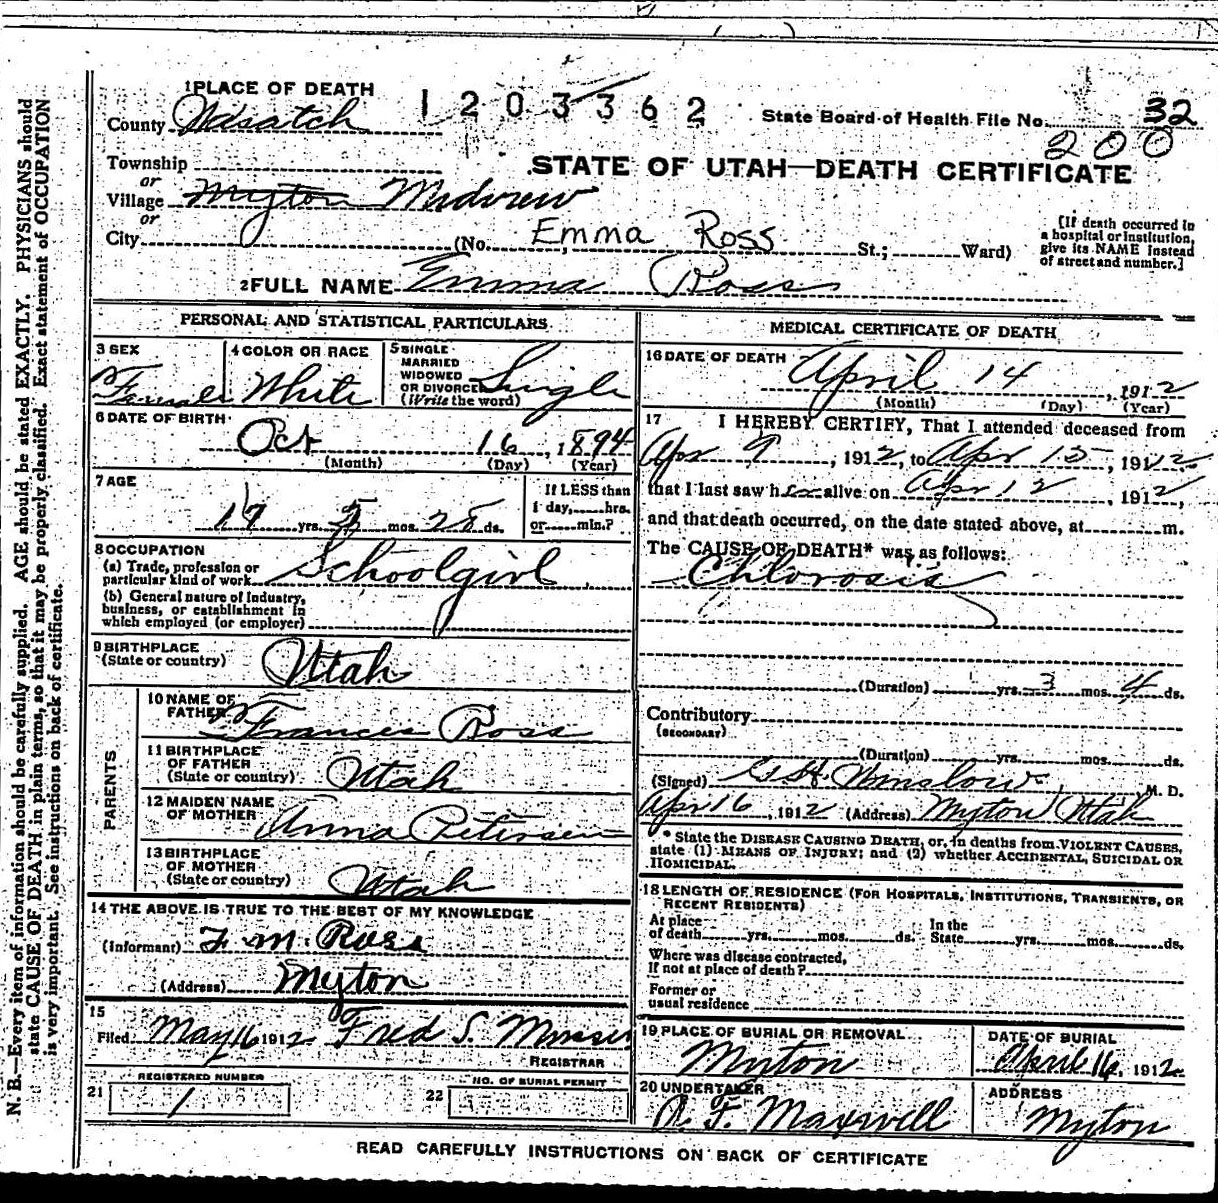 1 PLACE OF DEATH
1203362
State Board of Health File No. 32
200
County Wasatch
STATE OF UTAH—DEATH CERTIFICATE
Township
or
Village Myton Midview
or
City (No. Emma Ross St.; Ward)
[If death occurred in a hospital or institution, give its NAME instead of street and number.]
2 FULL NAME Emma Ross
PERSONAL AND STATISTICAL PARTICULARS
3 SEX Female
4 COLOR OR RACE White
5 SINGLE MARRIED WIDOWED OR DIVORCED (Write the word) Single
6 DATE OF BIRTH Oct 16, 1894
(Month) (Day) (Year)
7 AGE 17 yrs. 5 mos. 28 ds.
If LESS than 1 day, hrs. or min.?
8 OCCUPATION
(a) Trade, profession or particular kind of work Schoolgirl
(b) General nature of Industry, business, or establishment in which employed (or employer)
9 BIRTHPLACE (State or country) Utah
PARENTS
10 NAME OF FATHER Frances Ross
11 BIRTHPLACE OF FATHER (State or country) Utah
12 MAIDEN NAME OF MOTHER Anna Petersen
13 BIRTHPLACE OF MOTHER (State or country) Utah
14 THE ABOVE IS TRUE TO THE BEST OF MY KNOWLEDGE
(Informant) F. M. Ross
(Address) Myton
15
Filed May 16 1912 Fred S.
REGISTRAR
REGISTERED NUMBER
21 1
NO. OF BURIAL PERMIT
22
MEDICAL CERTIFICATE OF DEATH
16 DATE OF DEATH April 14, 1912
(Month) (Day) (Year)
17 I HEREBY CERTIFY, That I attended deceased from
Apr 9, 1912, to Apr 15, 1912
that I last saw her alive on Apr 12, 1912,
and that death occurred, on the date stated above, at m.
The CAUSE OF DEATH* was as follows:
Chlorosis
(Duration) yrs. 3 mos. 4 ds.
Contributory
(SECONDARY)
(Duration) yrs. mos. ds.
(Signed) G. H. Winslow, M. D.
Apr 16, 1912 (Address) Myton Utah
* State the DISEASE CAUSING DEATH, or, in deaths from VIOLENT CAUSES, state (1) MEANS OF INJURY; and (2) whether ACCIDENTAL, SUICIDAL OR HOMICIDAL.
18 LENGTH OF RESIDENCE (FOR HOSPITALS, INSTITUTIONS, TRANSIENTS, OR RECENT RESIDENTS)
At place of death yrs. mos. ds. In the State yrs. mos. ds.
Where was disease contracted, If not at place of death?
Former or usual residence
19 PLACE OF BURIAL OR REMOVAL Myton
DATE OF BURIAL April 16, 1912
20 UNDERTAKER F. Maxwell
ADDRESS Myton
READ CAREFULLY INSTRUCTIONS ON BACK OF CERTIFICATE
N. B.—Every item of information should be carefully supplied. AGE should be stated EXACTLY. PHYSICIANS should
state CAUSE OF DEATH in plain terms, so that it may be properly classified. Exact statement of OCCUPATION
is very important. See instructions on back of certificate.